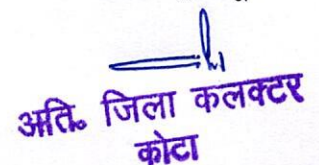 अति० जिला कलक्टर
कोटा